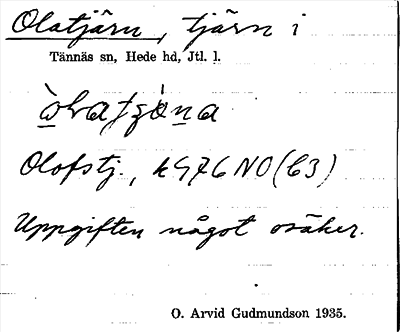 Olatjärn, tjärn i
Tännäs sn, Hede hd, Jtl. l.
Olofstj., k
Uppgiften något osäker.
O. Arvid Gudmundson 1935.